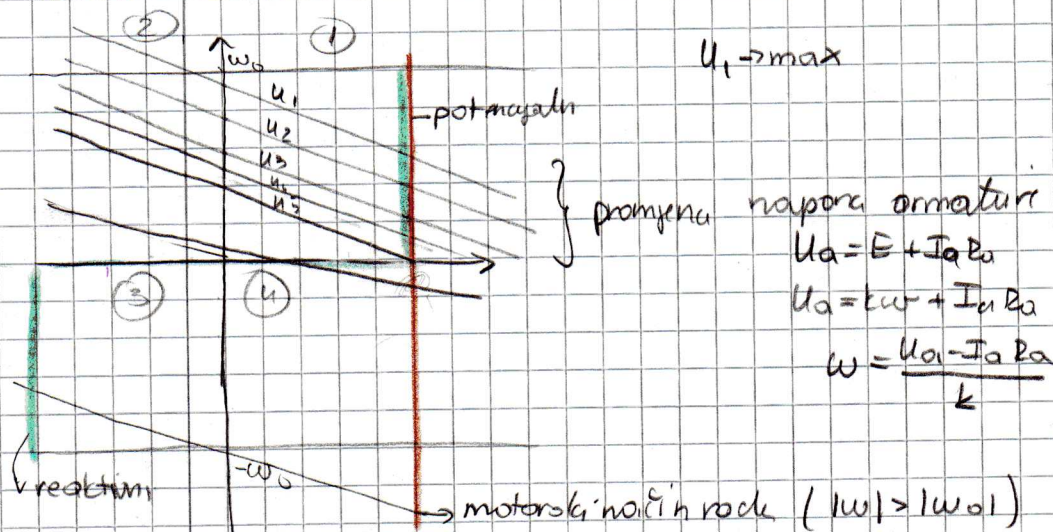 ② ①
ω₀
U₁ → max
U₁
U₂
U₃
U₄
U₅
potencijalni
promjena napona armature
Ua = E + Ia Ra
Ua = kω + Ia Ra
ω = (Ua - Ia Ra) / k
③ ④
-ω₀
reaktivni
motorski način rada (|ω| > |ω₀|)